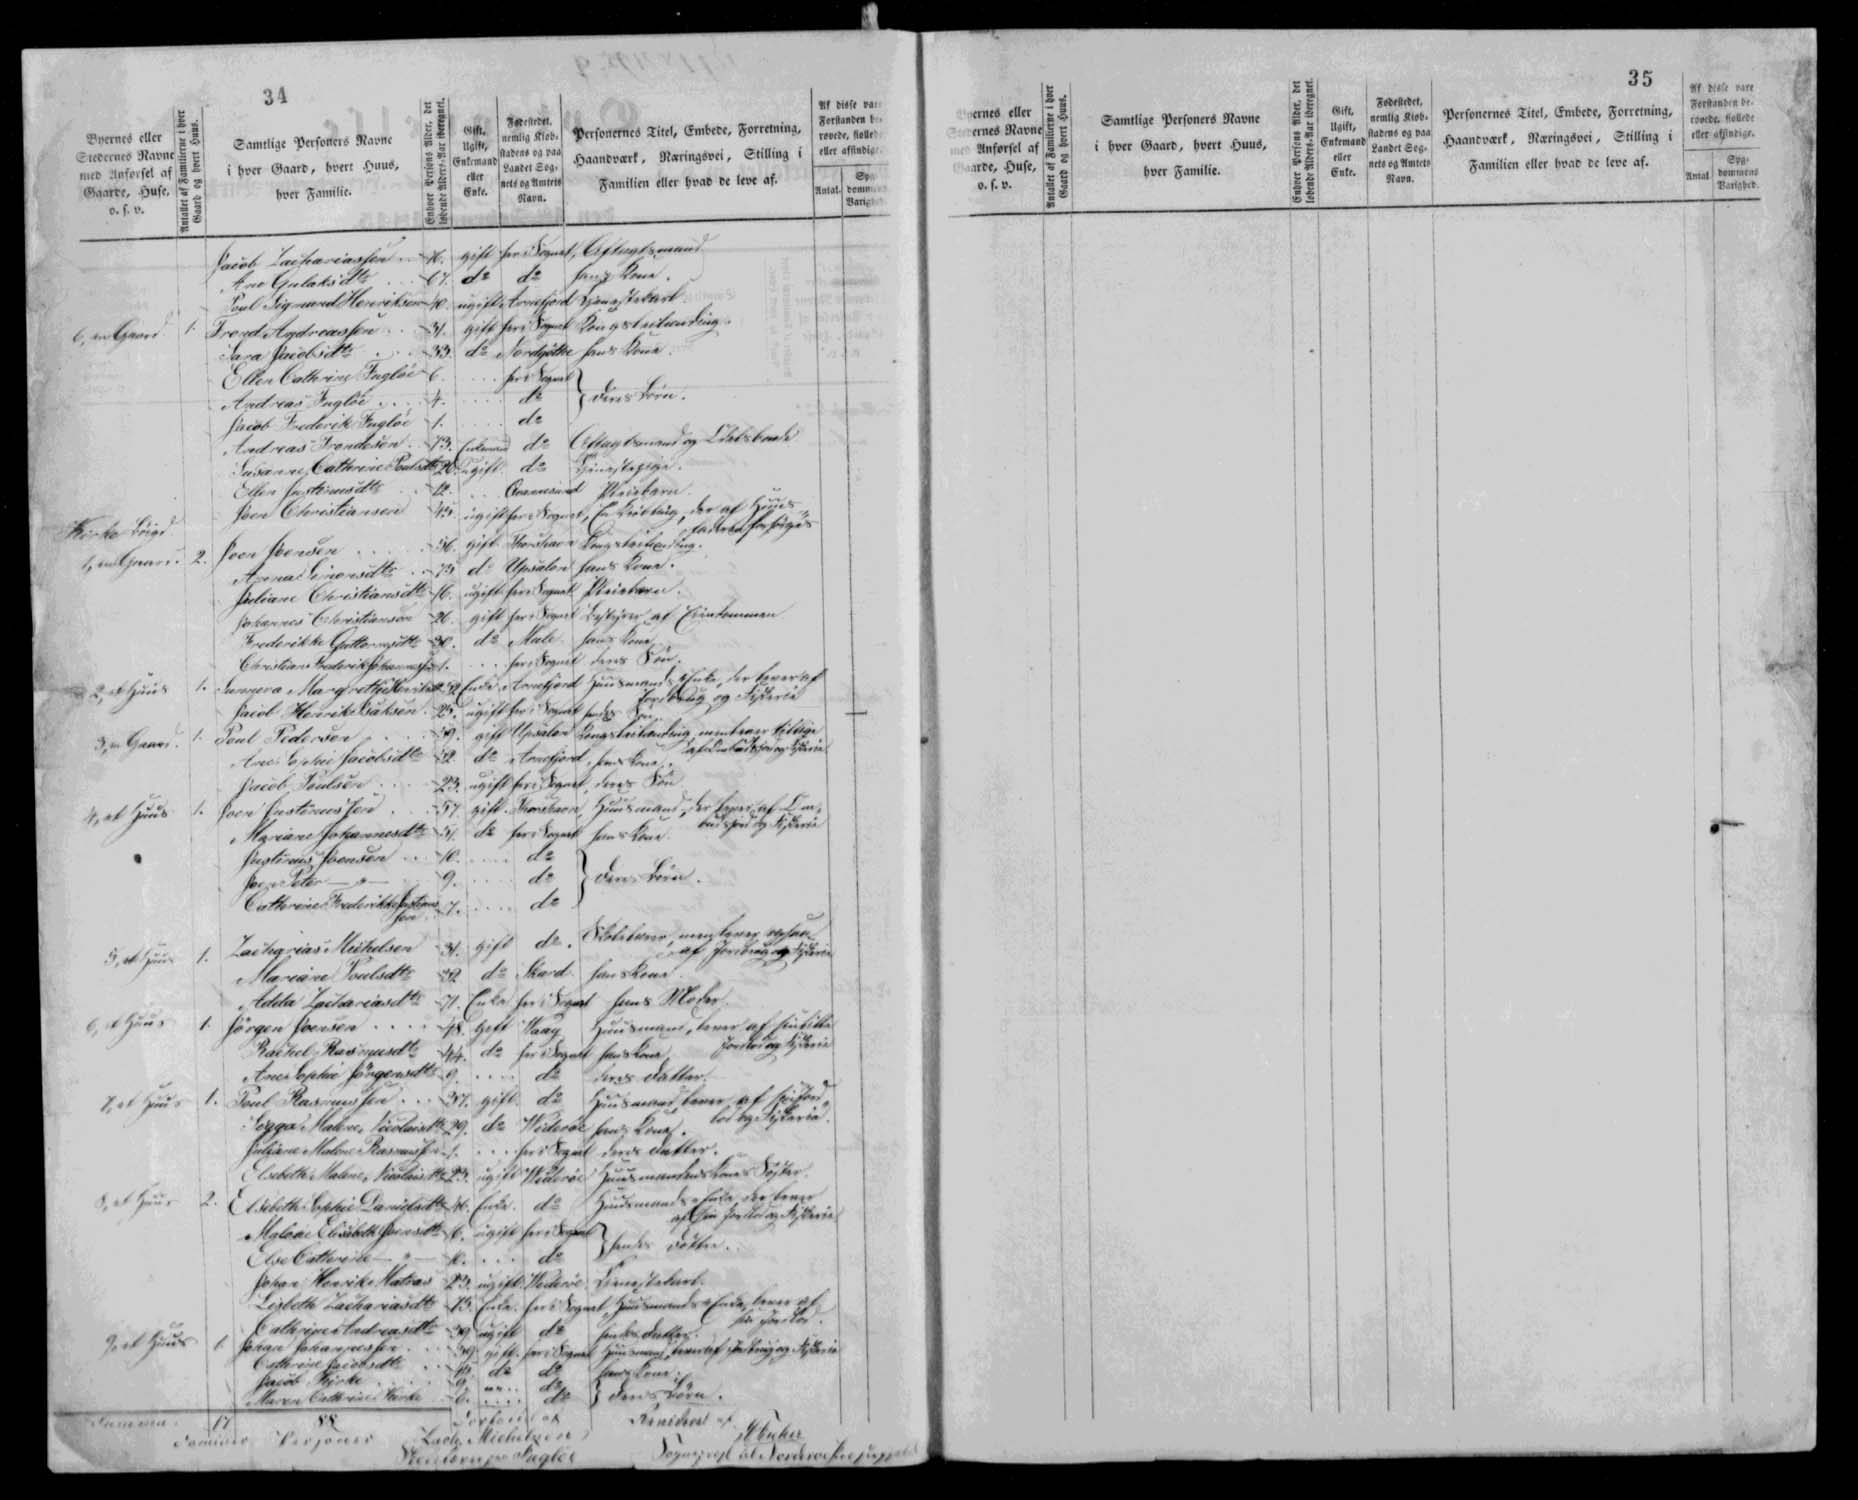 34
Byernes eller Stedernes Navne med Anførsel af Gaarde, Huse, o. s. v.
Antallet af Familierne i hver Gaard og hvert Huus.
Samtlige Personers Navne i hver Gaard, hvert Huus, hver Familie.
Enhver Persons Alder, det løbende Alders-Aar iberegnet.
Gift, Ugift, Enkemand eller Enke.
Fødestedet, nemlig Kiøbstadens og paa Landet Sognets og Amtets Navn.
Personernes Titel, Embede, Forretning, Haandværk, Næringsvei, Stilling i Familien eller hvad de leve af.
Af disse vare Forstanden berovede, fiollede eller afsindige.
Antal.
Sygdommens Varighed.
Jacob Zachariassen 76. gift her i Sognet, Aftægtsmand
Ane Gulaksdtr 67. do do hans Kone.
Poul Sigmund Henriksen 40. ugift Arnefjord Tjenestekarl
6, en Gaard 1. Trond Andreassen 31. gift her i Sognet Kongsleilending.
Sara Jacobsdtr 33. do Nordgöthe hans Kone.
Ellen Cathrine Fuglöe 6. her i Sognet
Andreas Fuglöe 4. do } deres Börn.
Jacob Frederik Fuglöe 1. do
Andreas Trondesen 73. Enkemand do Aftægtsmand og Odelsbonde
Susanne Cathrine Poulsdtr 20. ugift do Tjenestepige.
Ellen Justinusdtr 12. Qvannesund Pleiebarn.
Joen Christiansen 43. ugift her i Sognet, En Kröbling, der af Huus-
faderen forsörges
Kirke böigd
1, en Gaard. 2. Joen Joensen 56. gift Thorshavn Kongsleilending.
Anna Simonsdtr 73. do Upsalen hans Kone.
Juliane Christiansdtr 16. ugift her i Sognet Pleiebarn.
Johannes Christiansen 26. gift her i Sognet Bestyrer af Eiendommen
Frederikke Guttormsdtr 30. do Mule hans Kone
Christian Frederik Johannessen 1. her i Sognet deres Sön.
2, et Huus 1. Sunneva Margrethe Enke Arnefjord Huusmands Enke, der lever af
Jordbrug og Fiskerie
Jacob Henrik Isaksen 25. ugift her i Sognet hendes Sön
3, en Gaard. 1. Poul Pedersen 59. gift Upsalen Kongsleilending, men lever tillige
Ane Sophie Jacobsdtr 52. do Arnefjord, hans Kone.
Jacob Poulsen 23. ugift her i Sognet, deres Sön
4, et Huus 1. Joen Justinussen 57. gift Thorshavn, Huusmand, der lever af
og Fiskerie
Mariane Johannesdtr 51. do her i Sognet hans Kone.
Justinus Joensen 10. do
Joen Peter — " — 9. do } deres Börn.
Cathrine Frederikke Justinus-
sen 7. do
5, et Huus 1. Zacharias Michelsen 31. gift do. Skolelærer, men lever
af Jordbrug og Fiskerie
Mariane Poulsdtr 32. do Skard hans Kone
Adda Zachariasdtr 71. Enke her i Sognet hans Moder.
6, et Huus 1. Jörgen Joensen 48. gift Vaag Huusmand, lever af sin lille
Jordlod og Fiskerie
Rachel Rasmusdtr 44. do her i Sognet hans Kone
Ane Sophie Jörgensdtr 9. do deres Datter.
7, et Huus 1. Poul Rasmussen 37. gift do Huusmand lever af sin Jord-
lod og Fiskerie.
Malene Nicolaisdtr 29. do Wideröe hans Kone.
Juliane Malene Rasmussen 1. her i Sognet deres Datter.
Elsebeth Malene Nicolaisdtr 23. ugift Wideröe Huusmandens Kones Söster.
8, et Huus 2. Elsebeth Sophie Danielsdtr Enke. do Huusmands Enke, der lever
af sin Jordlod og Fiskerie
Malene Elisabeth Joensdtr 16. ugift her i Sognet
Else Cathrine — " — 10. do } hendes Döttre.
Johan Henrik Matras 23. ugift Wideröe Tjenestekarl.
Lisbeth Zachariasdtr 73. Enke. her i Sognet, Huusmands Enke, lever af
sin Jordlod.
Cathrine Andreasdtr 39 ugift do hendes Datter.
9, et Huus 1. Johan Johannessen 39. gift. her i Sognet Huusmand, lever af Jordbrug og Fiskerie
Cathrine Jacobsdtr do do hans Kone.
Jacob Kirke 9. do
Maren Cathrine Kirke 6. do } deres Börn.
Summa. 17 88
Familier Personer
Forfattet af
Zach. Michelsen
Fuglöe
Revideret af
Sognepræst til Norderöernes
35
Byernes eller Stedernes Navne med Anførsel af Gaarde, Huse, o. s. v.
Antallet af Familierne i hver Gaard og hvert Huus.
Samtlige Personers Navne i hver Gaard, hvert Huus, hver Familie.
Enhver Persons Alder, det løbende Alders-Aar iberegnet.
Gift, Ugift, Enkemand eller Enke.
Fødestedet, nemlig Kiøbstadens og paa Landet Sognets og Amtets Navn.
Personernes Titel, Embede, Forretning, Haandværk, Næringsvei, Stilling i Familien eller hvad de leve af.
Af disse vare Forstanden berovede, fiollede eller afsindige.
Antal
Sygdommens Varighed.